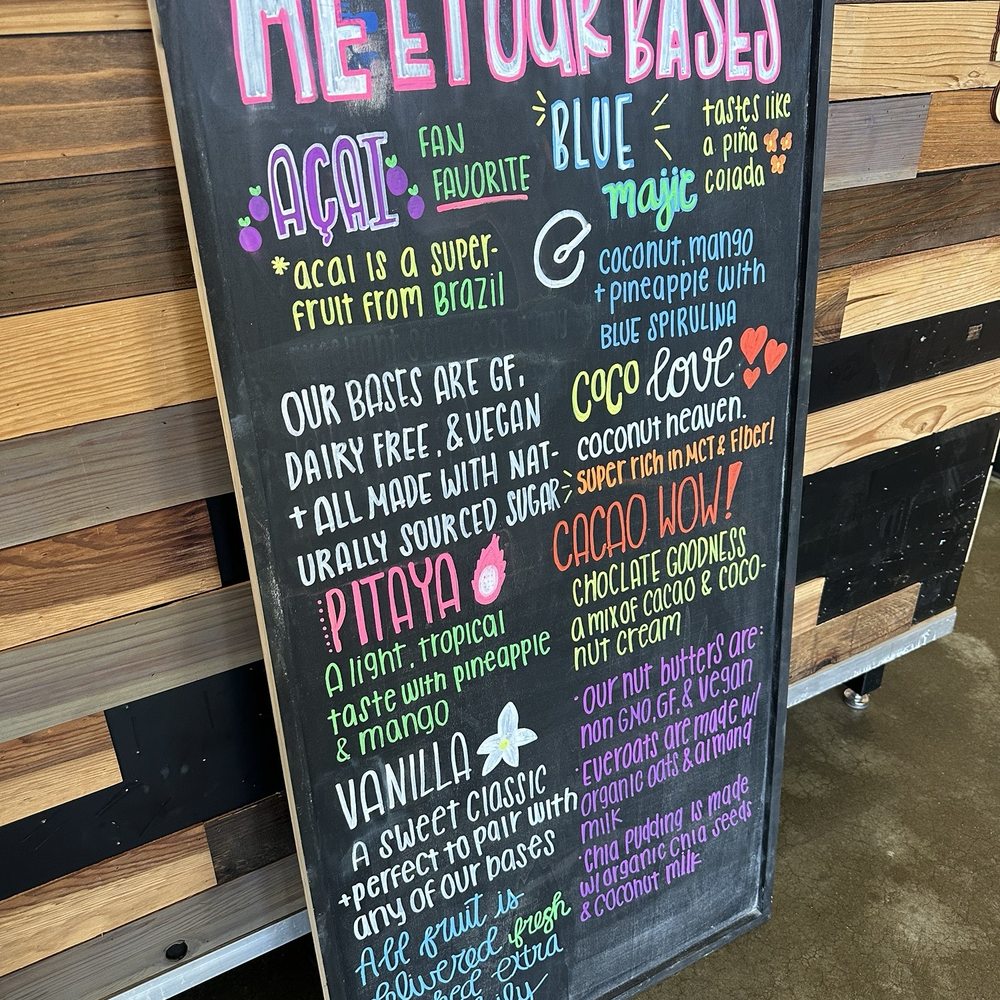 MEET OUR BASES
AÇAI
FAN
FAVORITE
*acai is a super-
fruit from Brazil
OUR BASES ARE GF,
DAIRY FREE, & VEGAN
+ ALL MADE WITH NAT-
URALLY SOURCED SUGAR
PITAYA
A light, tropical
taste with pineapple
& mango
VANILLA
A sweet classic
+perfect to pair with
any of our bases
All fruit is
delivered fresh
extra
BLUE
majic
tastes like
a piña
colada
coconut, mango
+ pineapple with
BLUE SPIRULINA
COCO love
coconut heaven.
super rich in MCT & Fiber!
CACAO WOW!
CHOCLATE GOODNESS
a mix of cacao & coco-
nut cream
·our nut butters are:
non GMO, GF, & vegan
·Everoats are made w/
organic oats & almond
milk
·Chia pudding is made
w/ organic chia seeds
& coconut milk